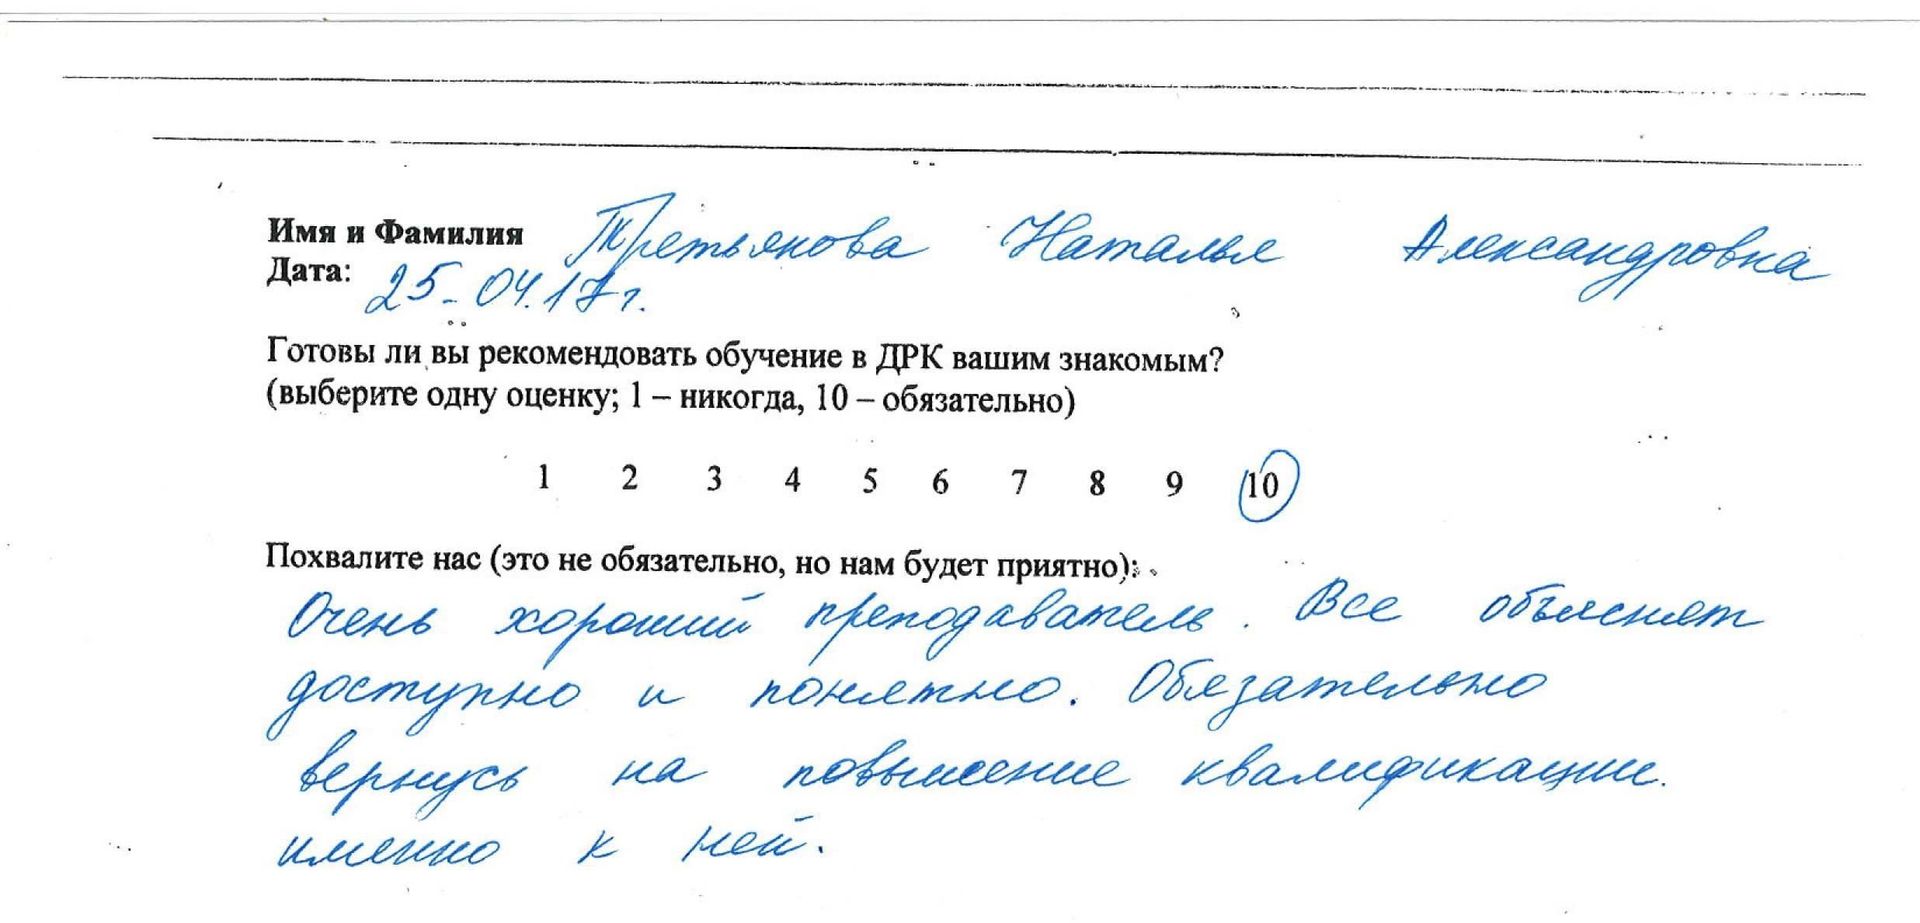 Имя и Фамилия Третьякова Наталья Александровна
Дата: 25.04.17г.
Готовы ли вы рекомендовать обучение в ДРК вашим знакомым?
(выберите одну оценку; 1 – никогда, 10 – обязательно)
1 2 3 4 5 6 7 8 9 10
Похвалите нас (это не обязательно, но нам будет приятно):
Очень хороший преподаватель. Все объясняет
доступно и понятно. Обязательно
вернусь на повышение квалификации.
именно к ней.